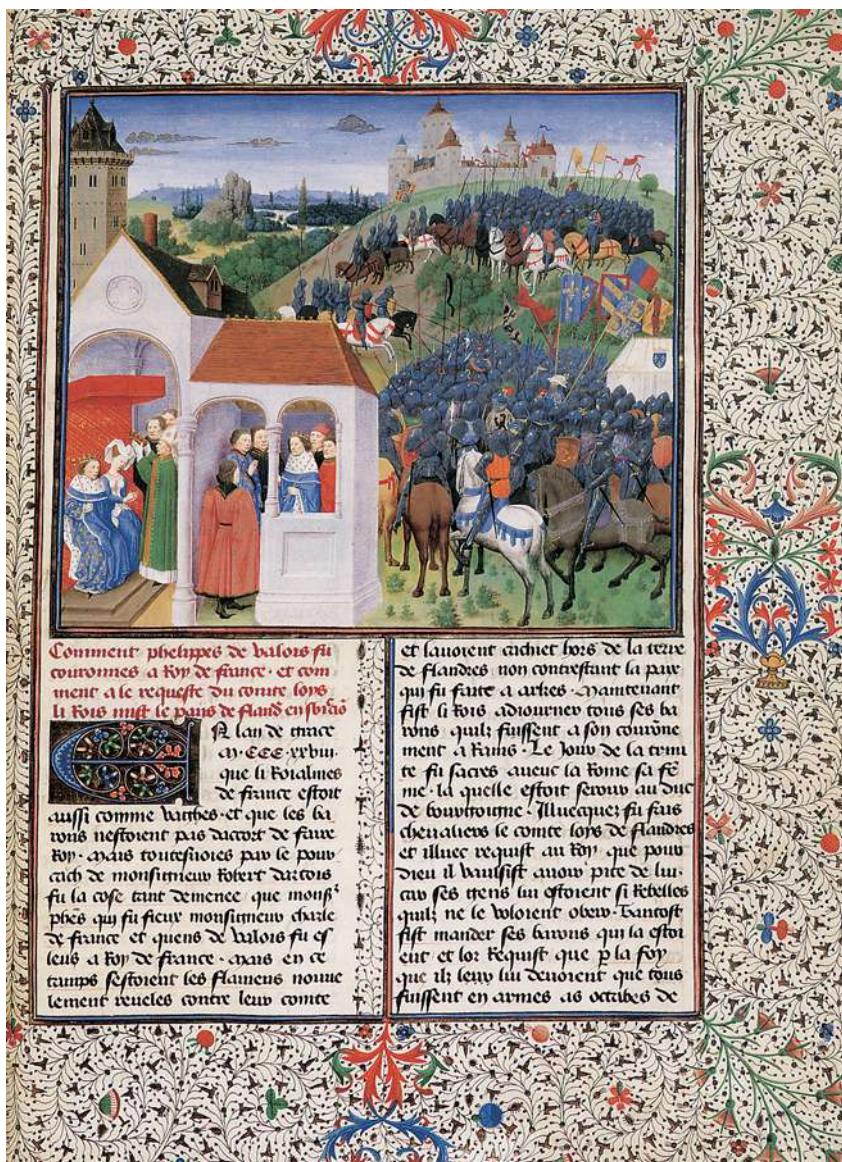 Comment phelippes de valois fu
couronnes a Roy de france · et com
ment a le requeste du comte loys
li Rois mist le pais de fland en
En lan de grace
m · ccc · xxviii ·
que li Roialmes
de france estoit
aussi comme vacghes · et que les ba
rons nestoient pas daccort de faire
Roy · mais toutesuoies par le pour
cach de monsigneur Robert dartois
fu la cose tant demenee que monsr
phes qui fu fieux monsigneur charle
de france et quens de valois fu es
leus a Roy de france · mais en ce
tamps sestoient les flamens nouue
lement reueles contre leur comte
et lauoient cachiet hors de la terre
de flandres non contrestant la paix
qui fu faite a arkes · Maintenant
fist li Rois adiourner tous ses ba
rons quilz fuissent a son couronne
ment a Rains · Le Jour de la trini
te fu sacres auecques la Roine sa fe
me · la quelle estoit serour au duc
de bourgoigne · Illuecques fu fais
cheualiers le comte loys de flandres
et illuec requist au Roy que pour
dieu il vaulsist auoir pite de lui ·
car ses gens lui estoient si Rebelles
quilz ne le voloient obeir · Tantost
fist mander ses barons qui la estoi
ent et lor Requist que p la foy
que ilz leur lui deuoient que tous
fuissent en armes as octabes de